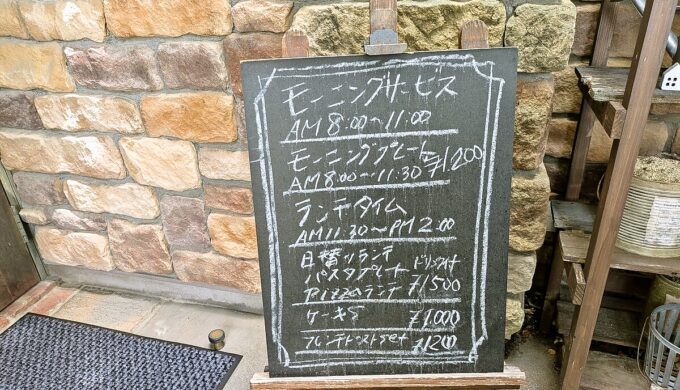 モーニングサービス
AM 8:00〜11:00
モーニングプレート ¥1200
AM 8:00〜11:30
ランチタイム
AM 11:30〜PM 2:00
日替りランチ
パスタプレート ドリンク付
PIZZAランチ ¥1500
ケーキS ¥1,000
フレンチトーストset ¥1200